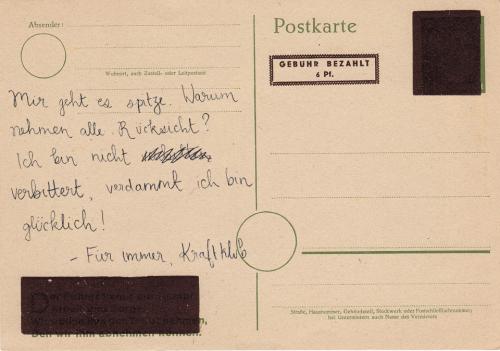 Absender:
Postkarte
GEBÜHR BEZAHLT
6 Pf.
Wohnort, auch Zustell- oder Leitpostamt
Mir geht es spitze. Warum
nehmen alle Rücksicht?
Ich bin nicht
verbittert, verdammt ich bin
glücklich!
- Für immer, Kraftklub
Den wir ihm abnehmen können.
Straße, Hausnummer, Gebäudeteil, Stockwerk oder Postschließfachnummer;
bei Untermietern auch Name des Vermieters